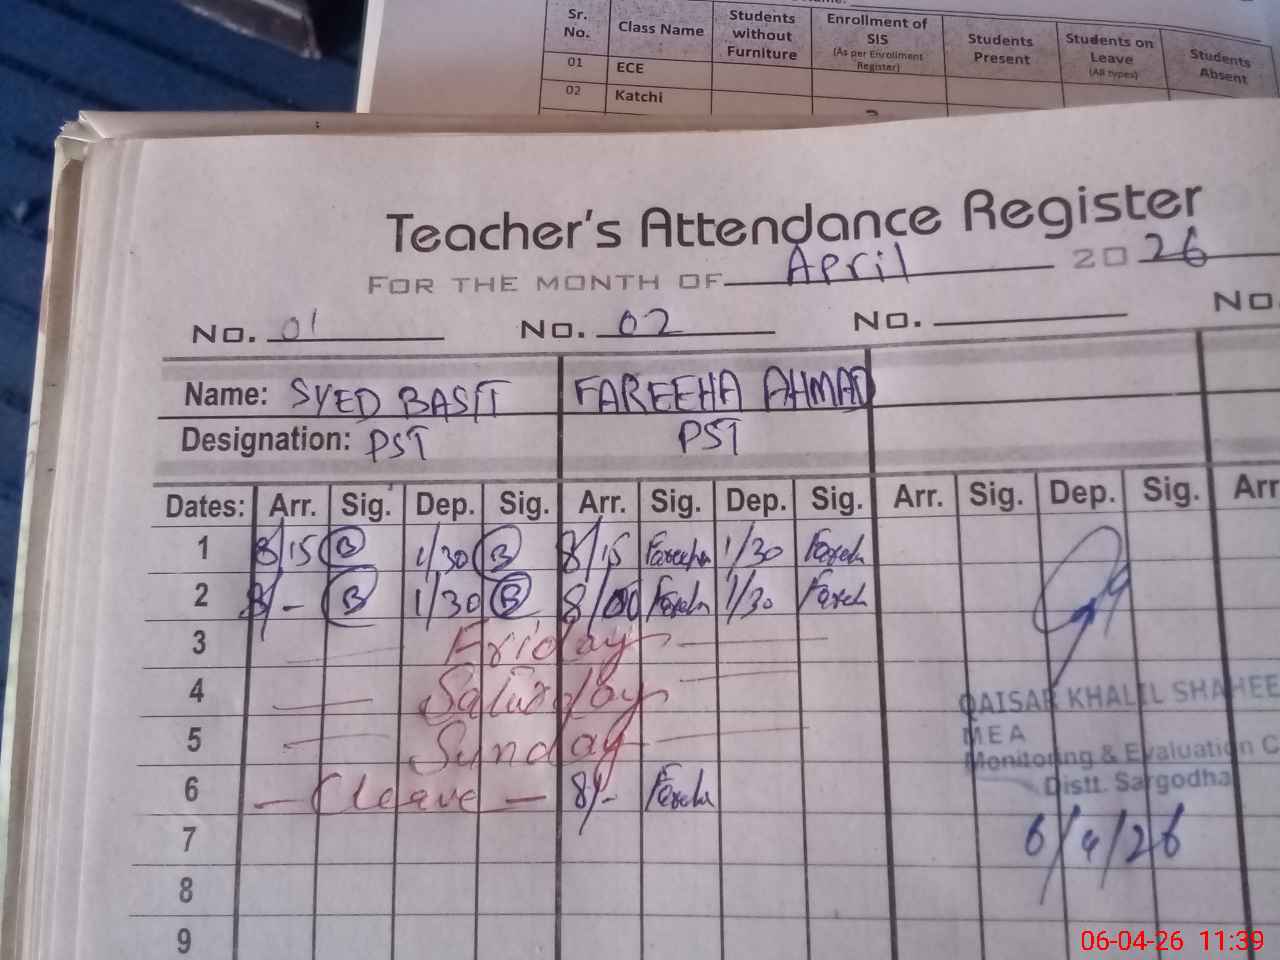 Sr. No. Class Name Students without Furniture Enrollment of SIS (As per Enrollment Register) Students Present Students on Leave (All types) Students Absent
01 ECE
02 Katchi
Teacher's Attendance Register
FOR THE MONTH OF April 2026
No. 01 No. 02 No. No.
Name: SYED BASIT FAREEHA AHMAD
Designation: PST PST
Dates: Arr. Sig. Dep. Sig. Arr. Sig. Dep. Sig. Arr. Sig. Dep. Sig. Arr
1 8/15 B 1/30 B 8/15 Fareeha 1/30
2 8/- B 1/30 B 8/00 1/30
3 Friday
4 Saturday
5 Sunday
6 - C leave - 8/-
7
8
9
QAISAR KHALIL SHAHEE
MEA
Monitoring & Evaluation C
Distt. Sargodha
6/4/26
06-04-26 11:39